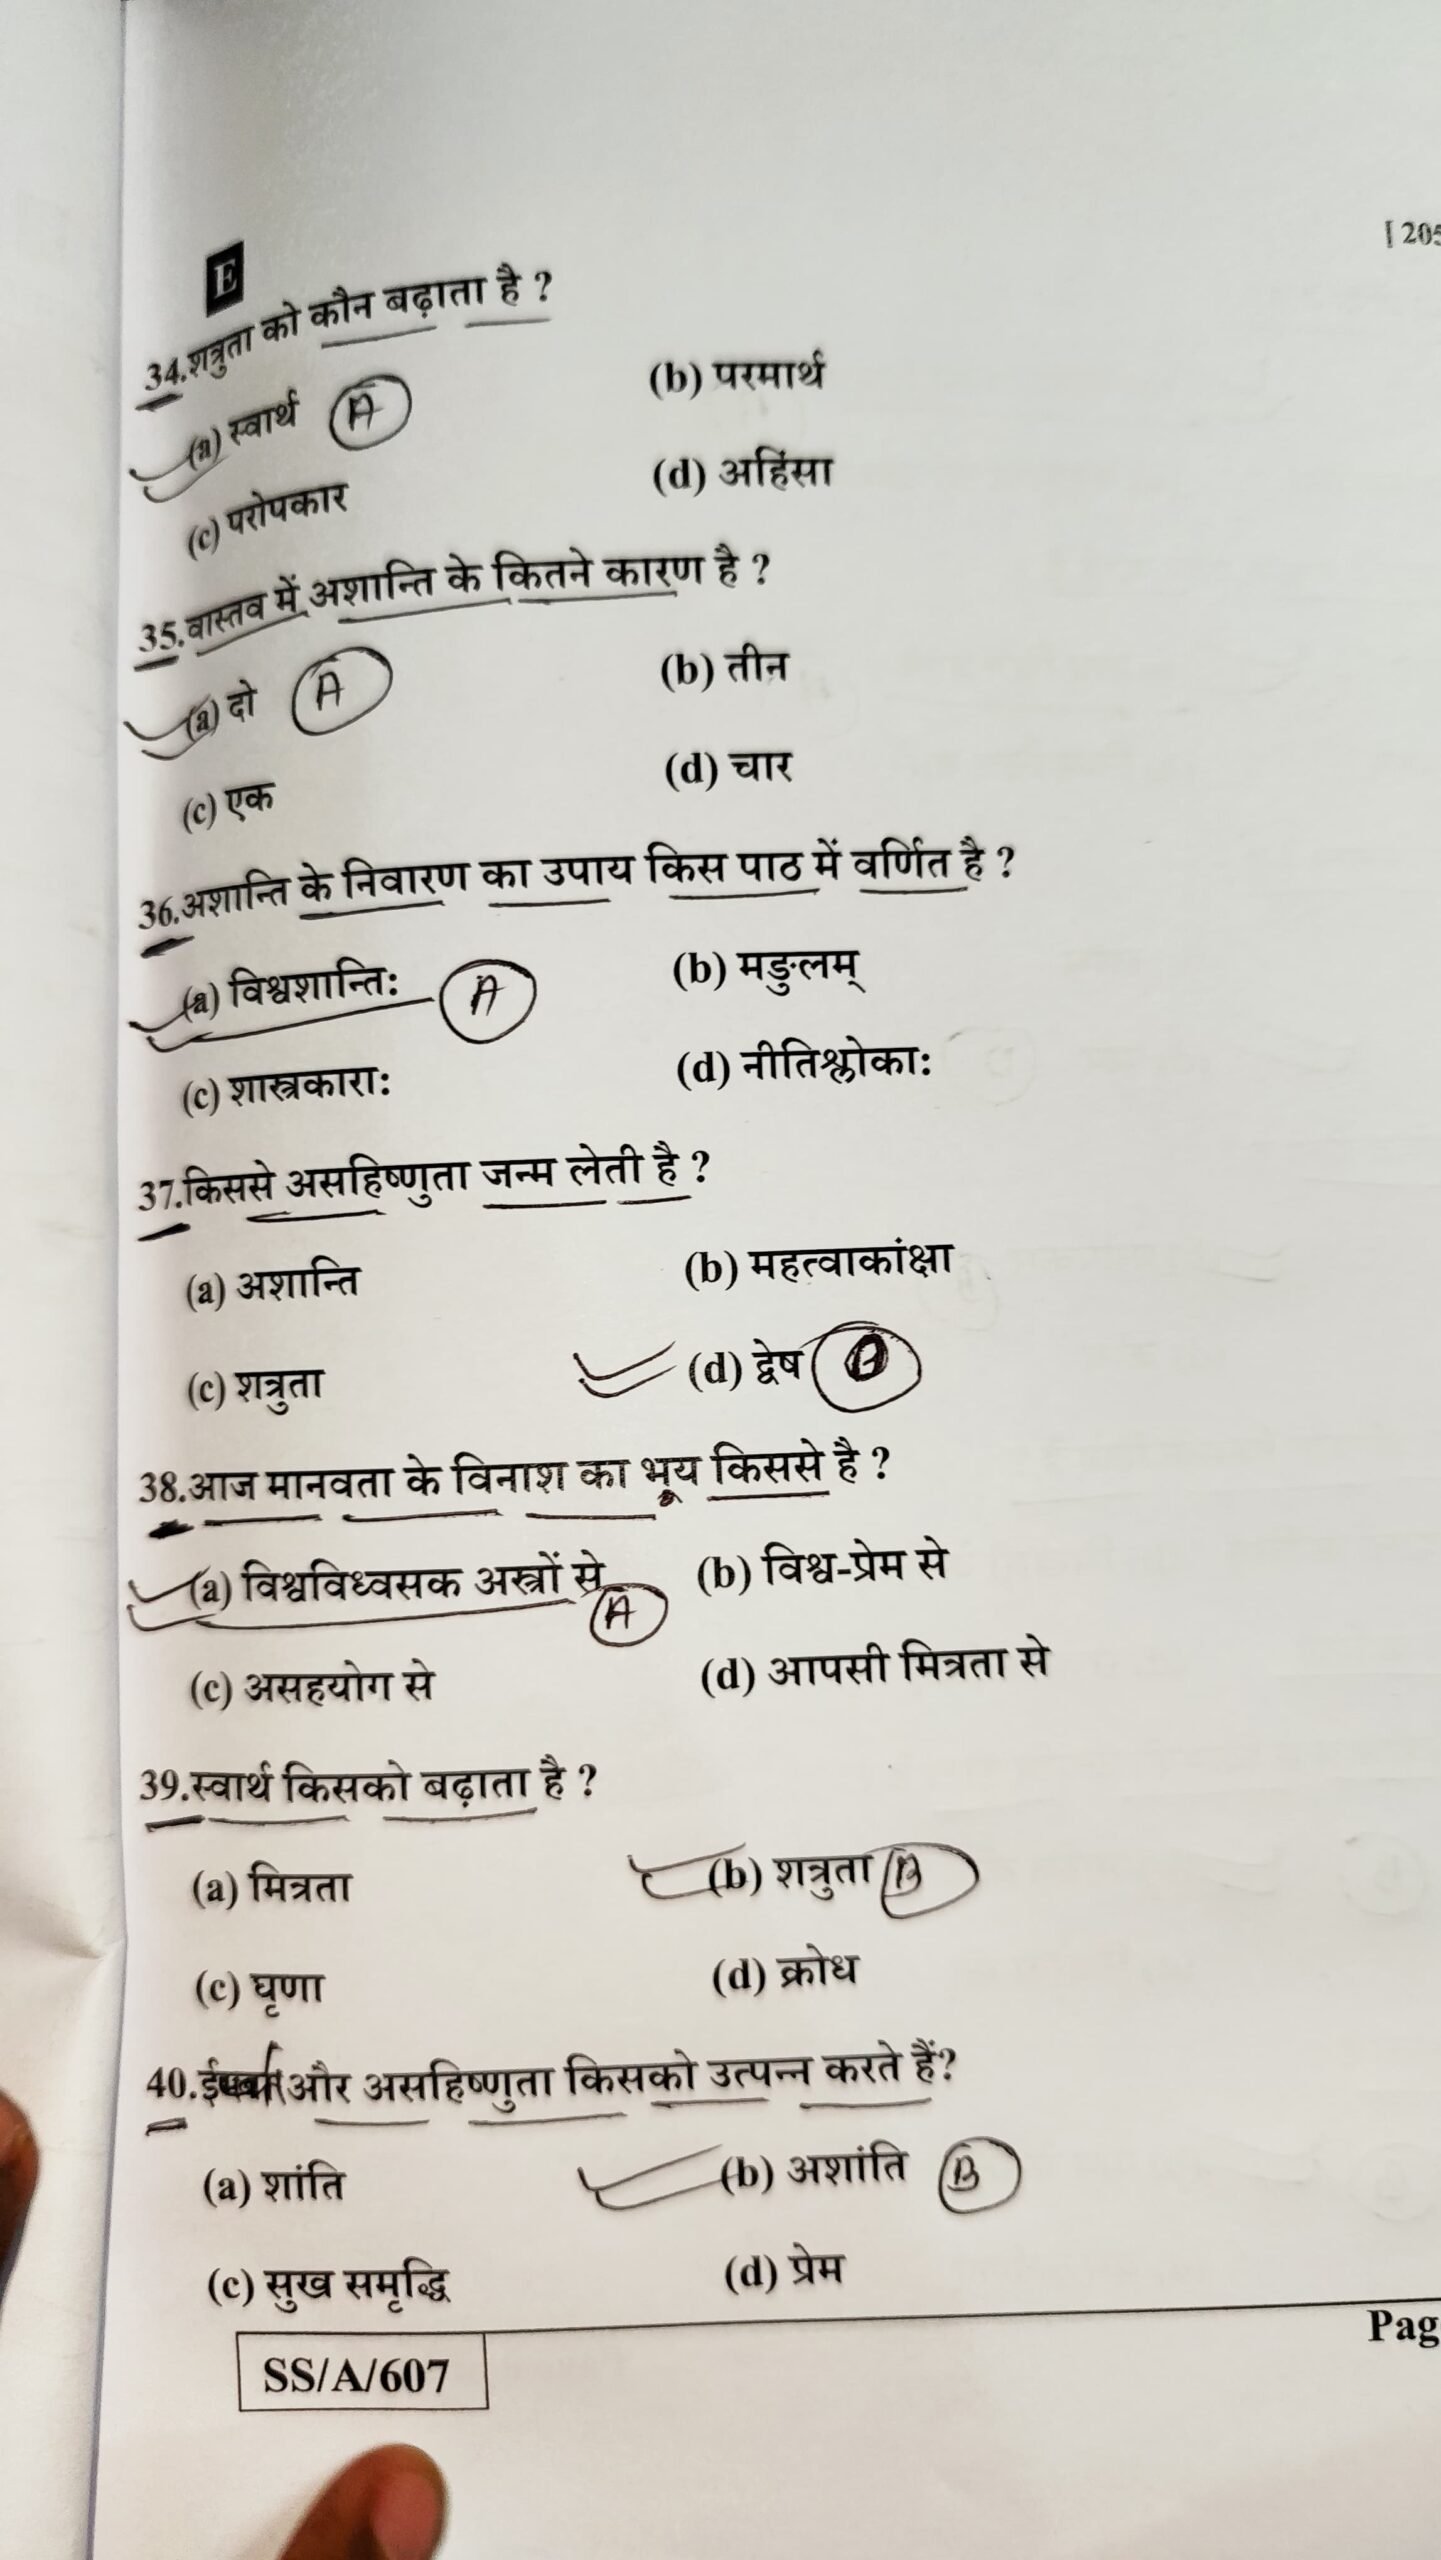 [ 205
E
34.शत्रुता को कौन बढ़ाता है ?
(a) स्वार्थ A (b) परमार्थ
(c) परोपकार (d) अहिंसा
35.वास्तव में अशान्ति के कितने कारण है ?
(a) दो A (b) तीन
(c) एक (d) चार
36.अशान्ति के निवारण का उपाय किस पाठ में वर्णित है ?
(a) विश्वशान्तिः A (b) मङ्गुलम्
(c) शास्त्रकाराः (d) नीतिश्लोकाः
37.किससे असहिष्णुता जन्म लेती है ?
(a) अशान्ति (b) महत्वाकांक्षा
(c) शत्रुता (d) द्वेष
38.आज मानवता के विनाश का भय किससे है ?
(a) विश्वविध्वसक अस्त्रों से A (b) विश्व-प्रेम से
(c) असहयोग से (d) आपसी मित्रता से
39.स्वार्थ किसको बढ़ाता है ?
(a) मित्रता (b) शत्रुता B
(c) घृणा (d) क्रोध
40. और असहिष्णुता किसको उत्पन्न करते हैं?
(a) शांति (b) अशांति B
(c) सुख समृद्धि (d) प्रेम
SS/A/607 Pag